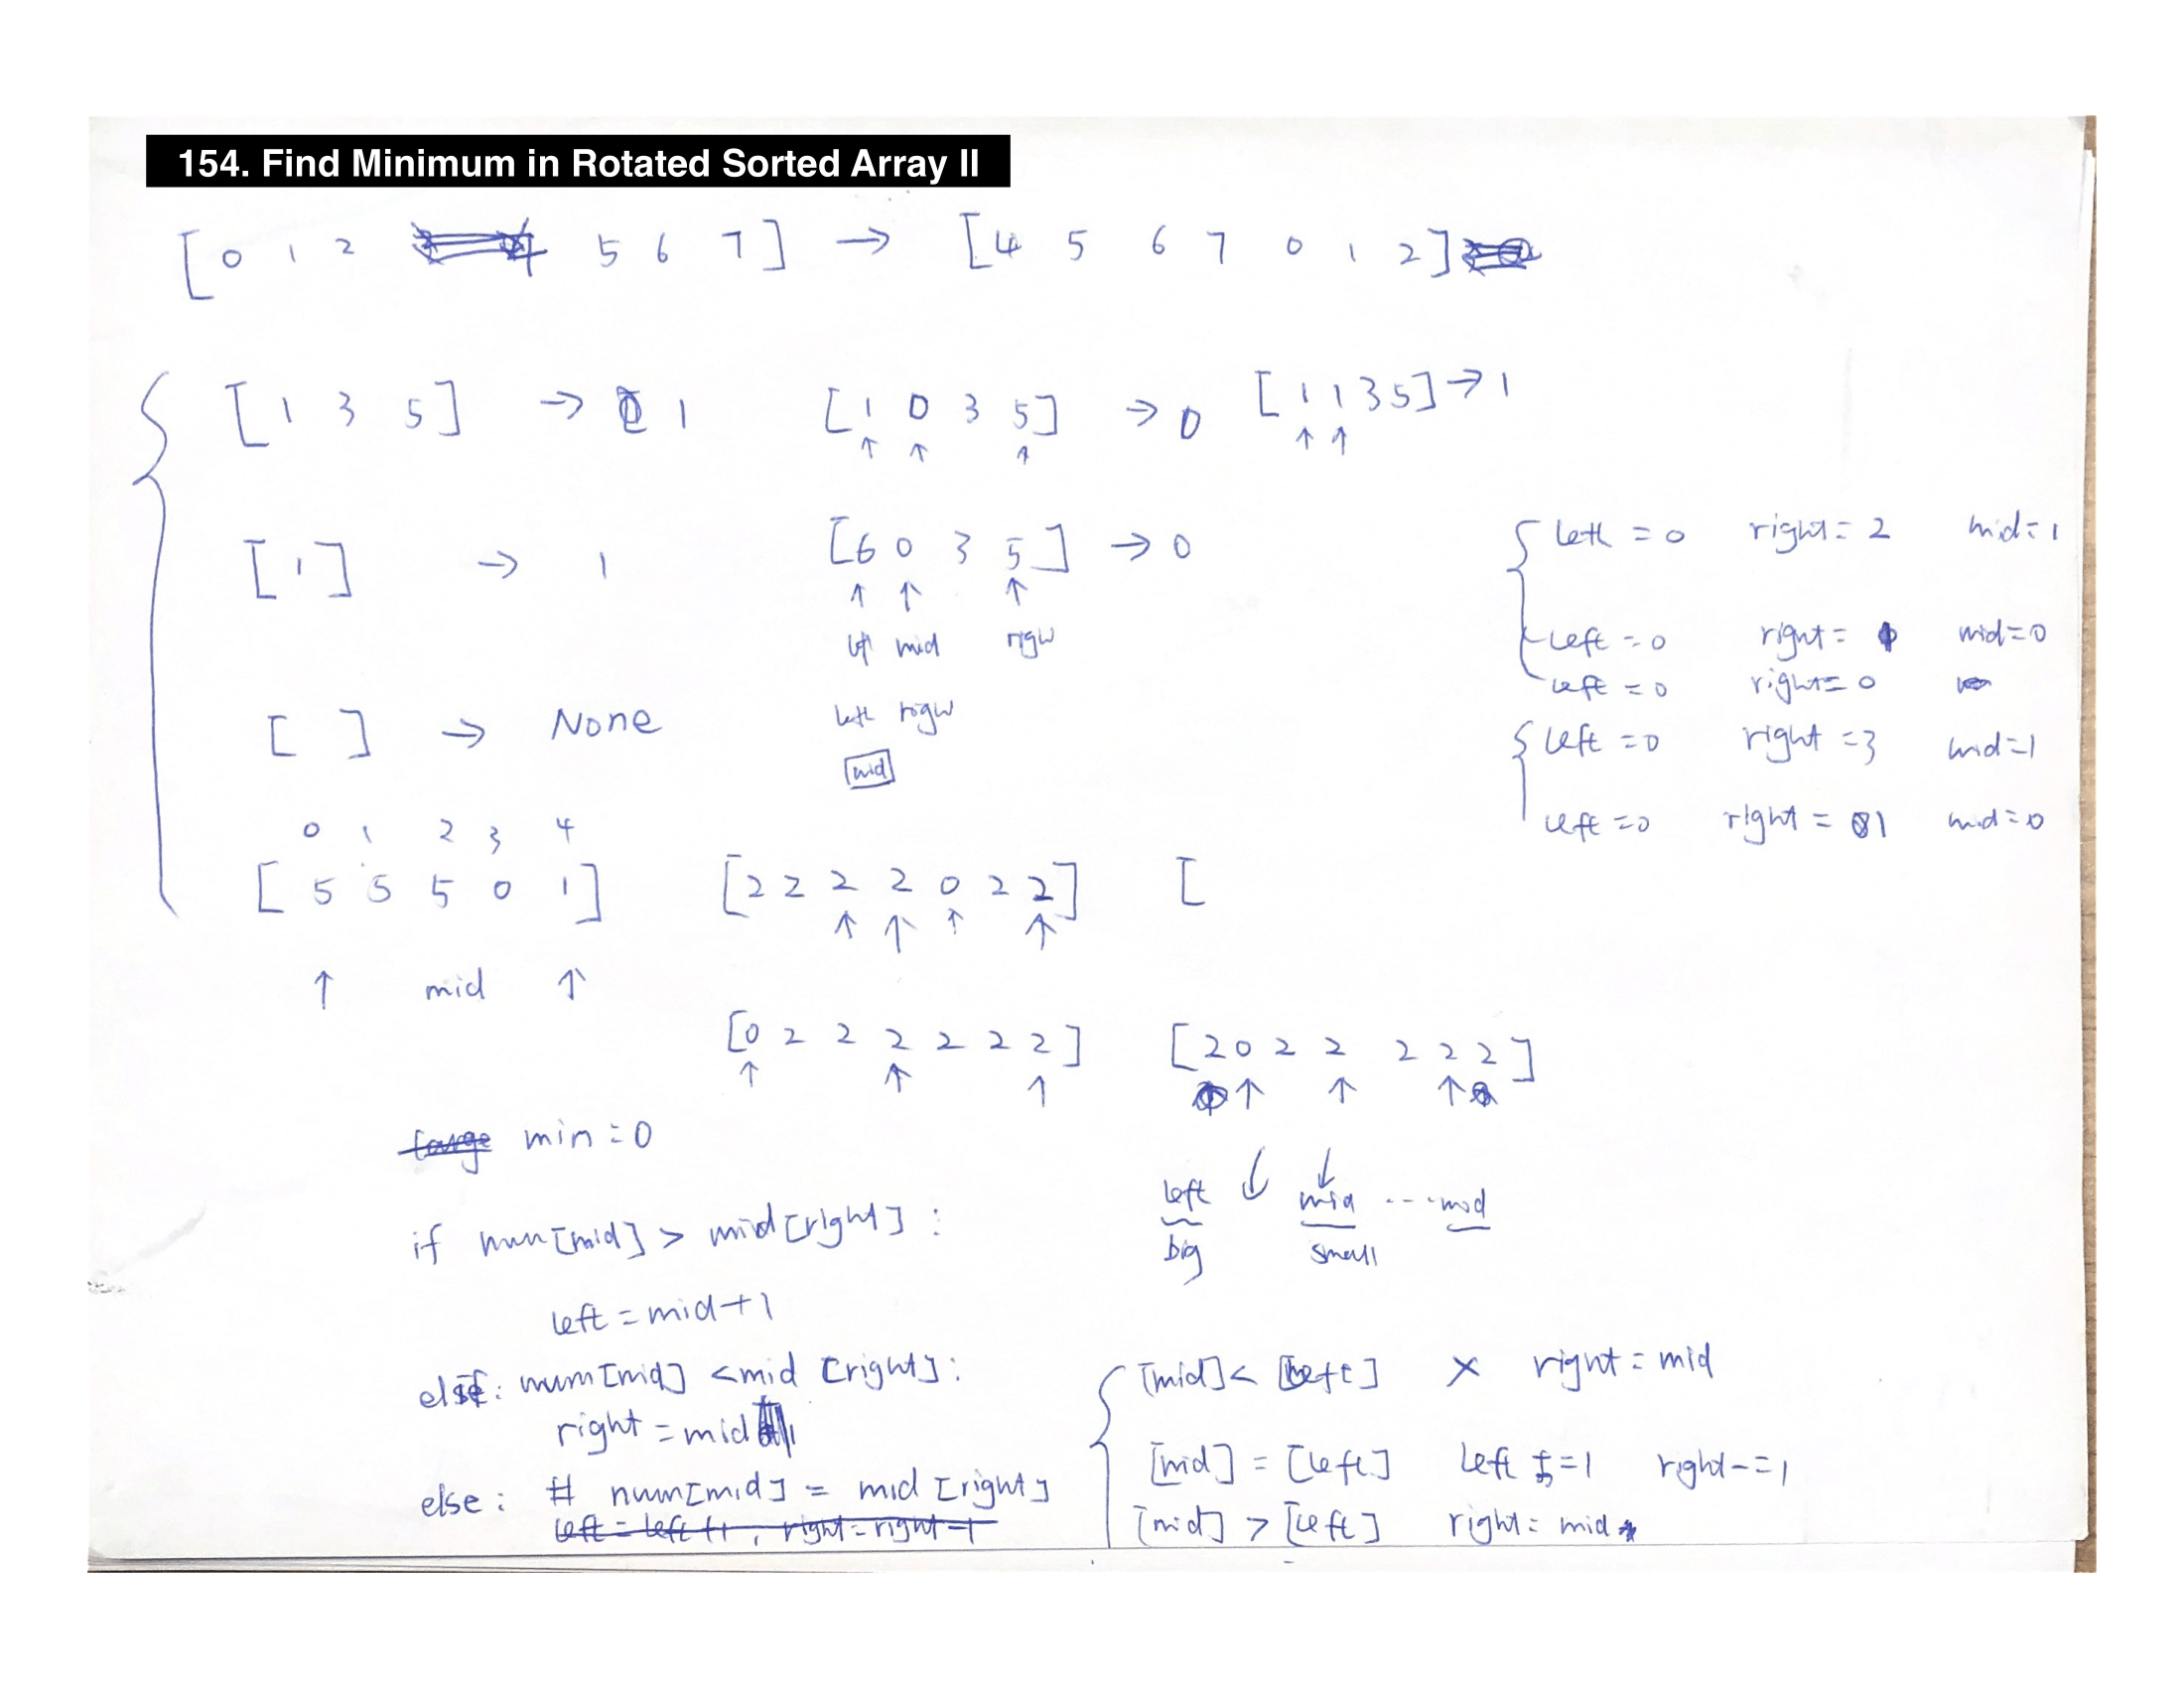 154. Find Minimum in Rotated Sorted Array II
[ 0 1 2 5 6 7 ] → [ 4 5 6 7 0 1 2 ]
[ 1 3 5 ] → 1 [ 1 0 3 5 ] → 0 [ 1 1 3 5 ] → 1
↑ ↑ ↑ ↑ ↑
[ 1 ] → 1 [ 6 0 3 5 ] → 0
↑ ↑ ↑
left = 0 right = 2 mid = 1
mid
left = 0 right = mid = 0
left = 0 right = 0
[ ] → None
left = 0 right = 3 mid = 1
mid
left = 0 right = 1 mid = 0
0 1 2 3 4
[ 5 5 5 0 1 ] [ 2 2 2 2 0 2 2 ] [
↑ ↑ ↑ ↑
↑ mid ↑
[ 0 2 2 2 2 2 2 ] [ 2 0 2 2 2 2 2 ]
↑ ↑ ↑ ↑ ↑ ↑
min = 0
left ↓ mid ---- mid
big small
if num[mid] > mid[right] :
left = mid + 1
elif : num[mid] < mid [right] :
right = mid
else : # num[mid] = mid [right]
left = left + 1 , right = right - 1
[mid] < [left] × right = mid
[mid] = [left] left += 1 right -= 1
[mid] > [left] right = mid